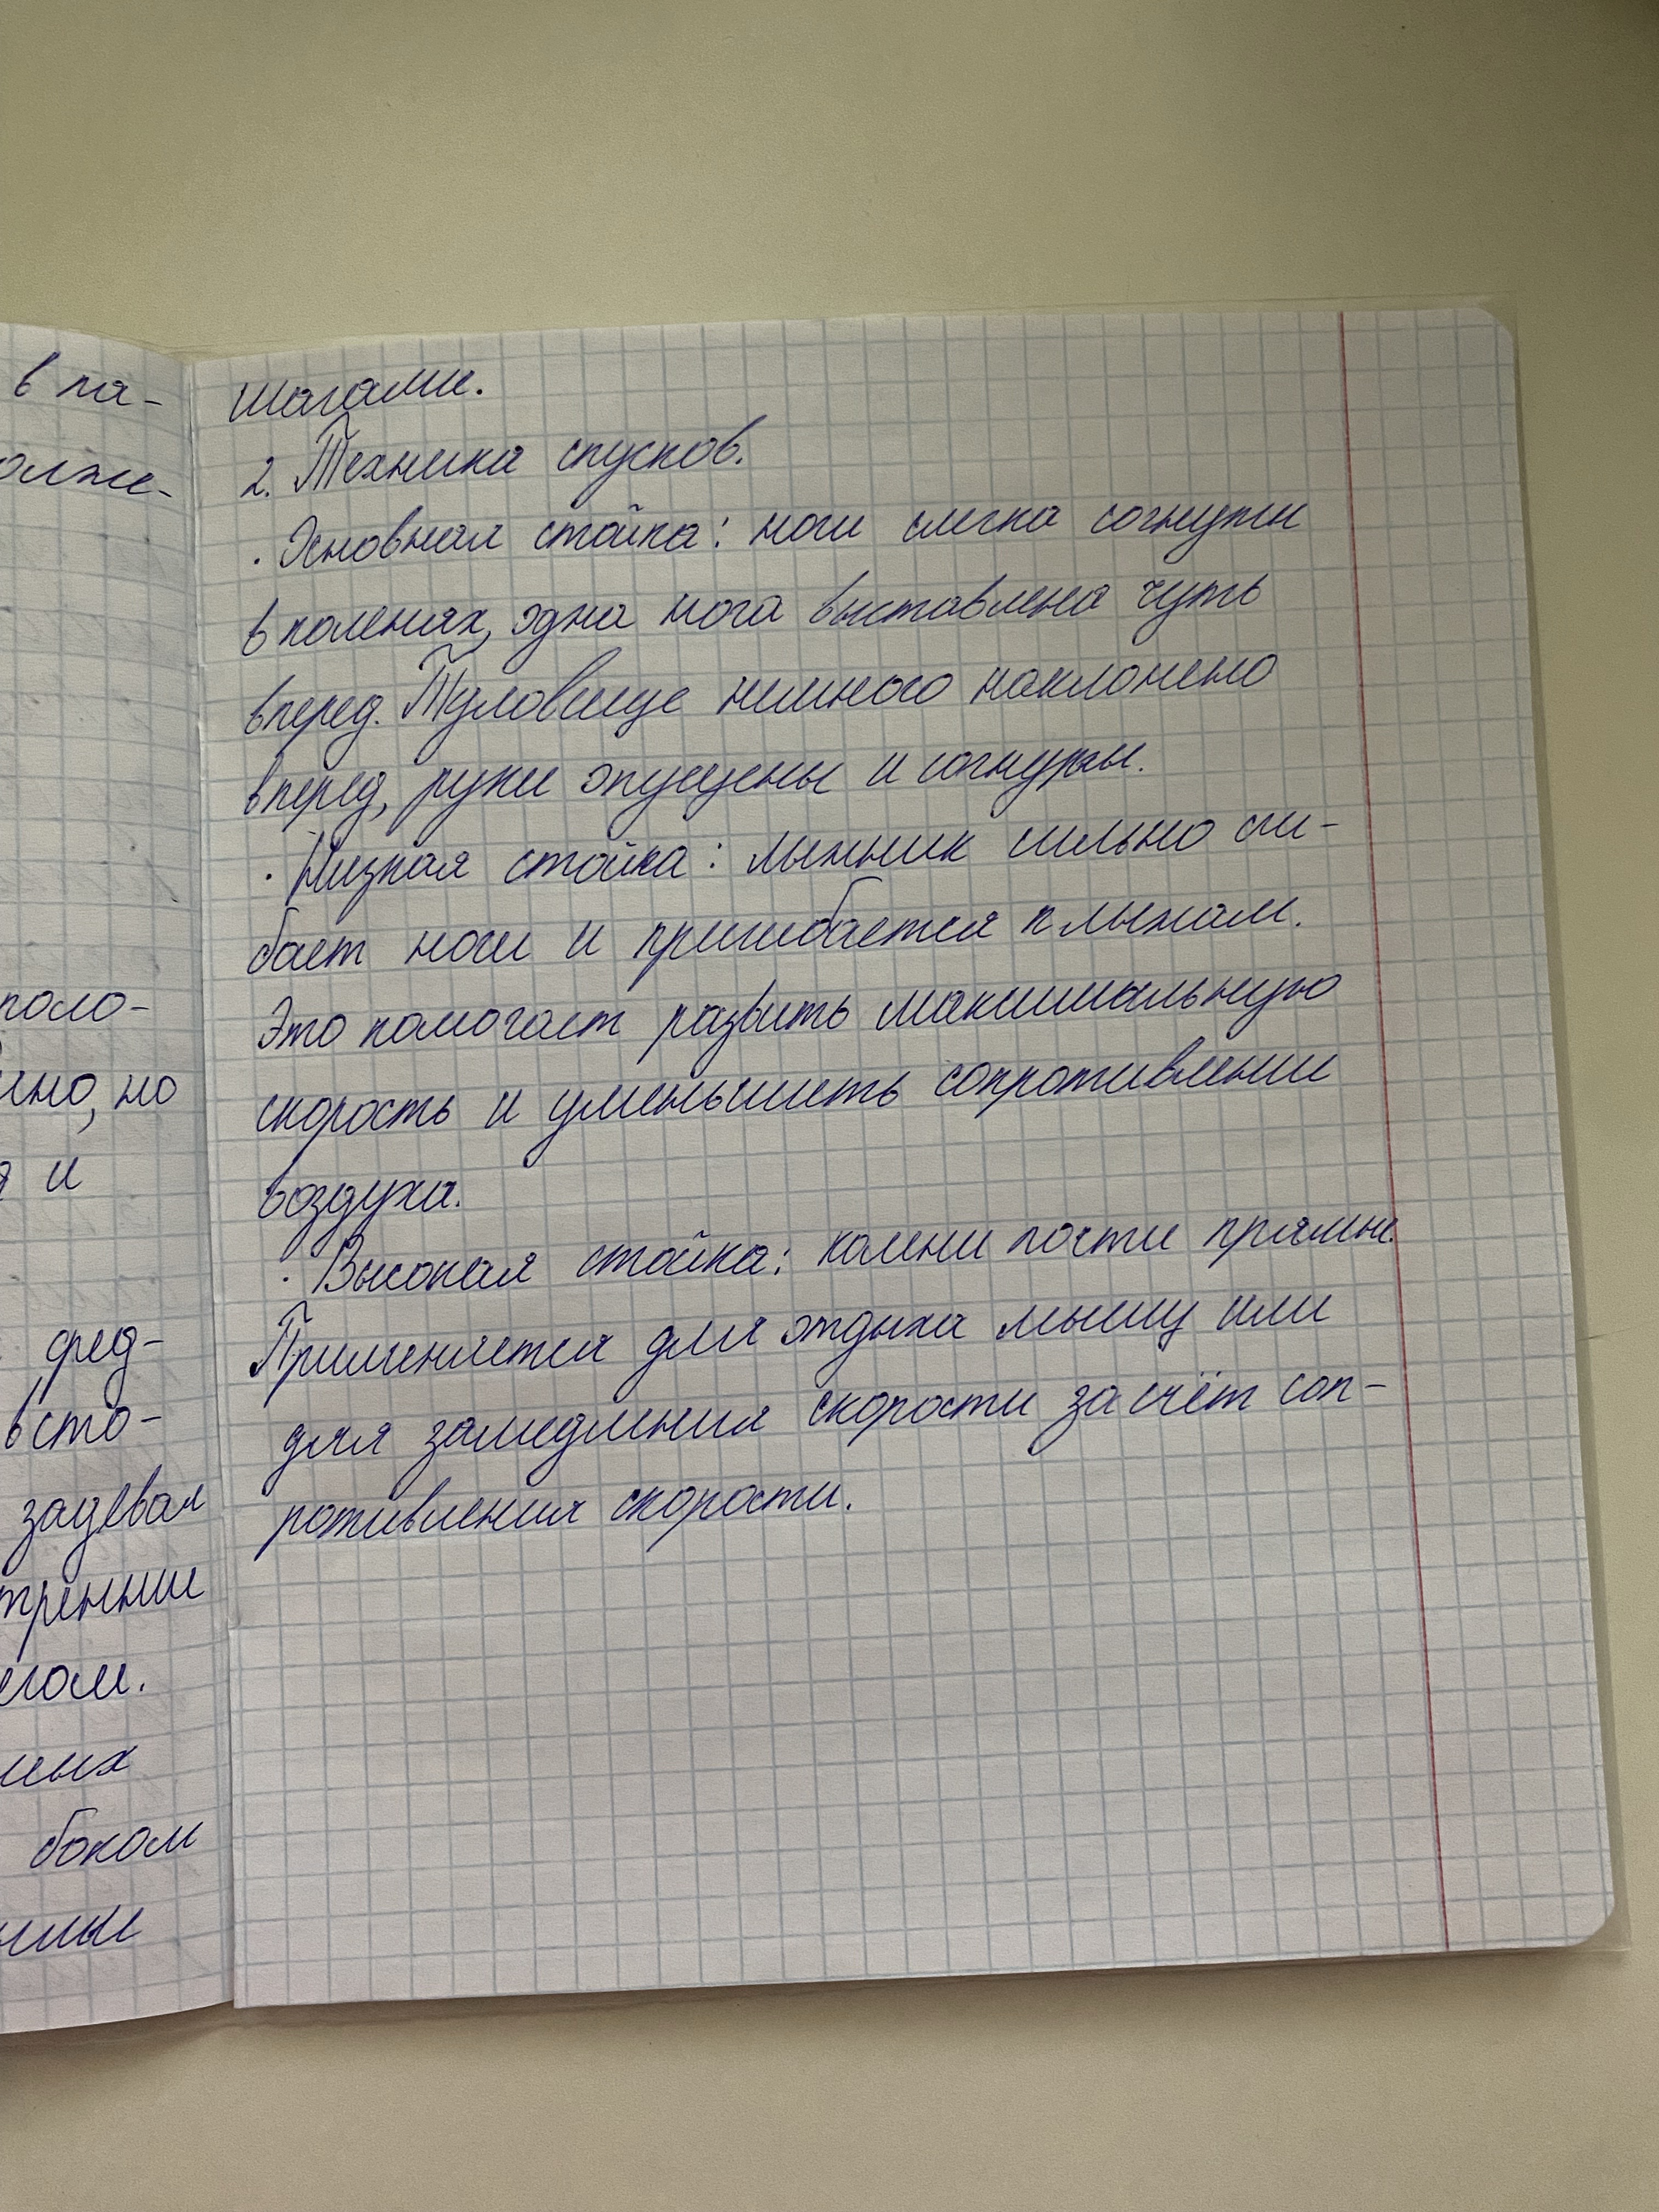 в па-
олже-
поло-
чно, но
я и
сред-
в сто-
задевал
тренние
егом.
мых
боком
шагами.
2. Техника спусков.
· Основная стойка: ноги слегка согнуты
в коленях, одна нога выставлена чуть
вперед. Туловище немного наклонено
вперед, руки опущены и согнуты.
· Низкая стойка: лыжник сильно сги-
бает ноги и пригибается к лыжам.
Это помогает развить максимальную
скорость и уменьшить сопротивление
воздуха.
· Высокая стойка: колени почти прямые.
Применяется для отдыха мышц или
для замедления скорости за счёт соп-
ротивления скорости.